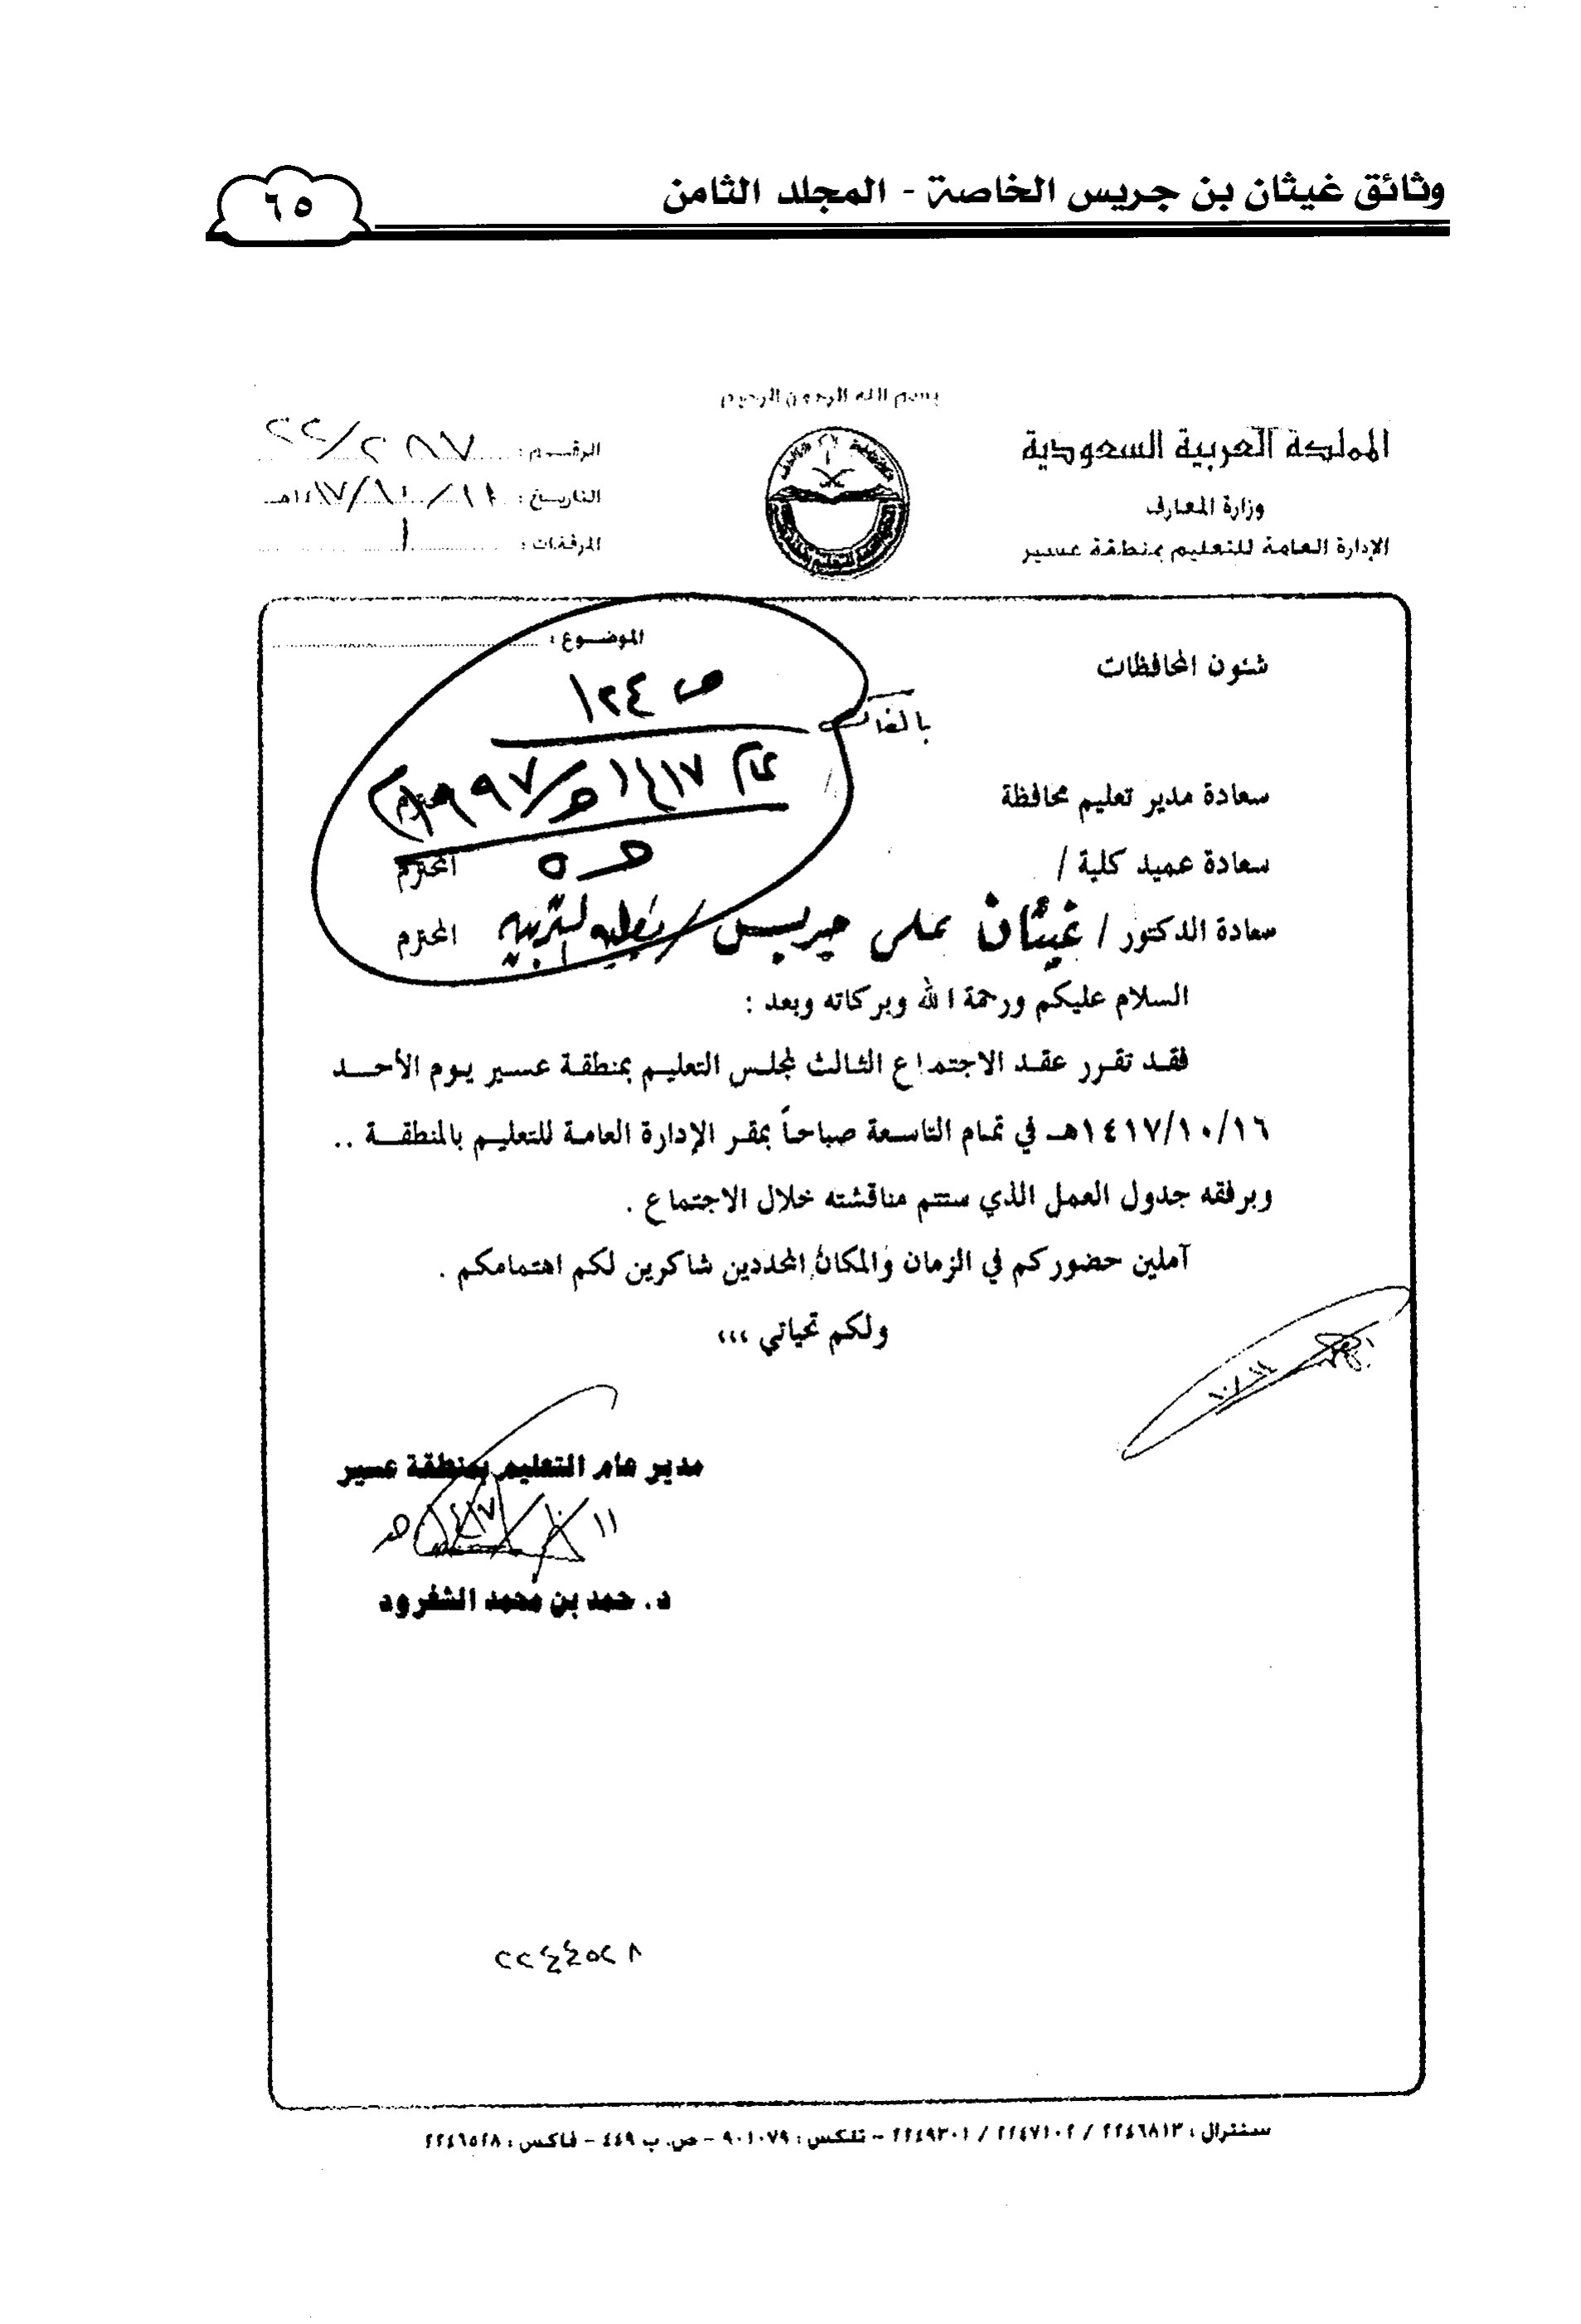 وثائق غيثان بن جريس الخاصة - المجلد الثامن
٦٥
بسم الله الرحمن الرحيم
المملكة العربية السعودية
وزارة المعارف
الإدارة العامة للتعليم بمنطقة عسير
الرقم :
التاريخ :
المرفقات : ١
الموضوع :
شئون المحافظات
ص ١٢٤
بالفاكس
عام ١٤١٧هـ/١٩٩٧م
سعادة مدير تعليم محافظة
سعادة عميد كلية / المحترم
سعادة الدكتور / غيثان علي جريس / المحترم
السلام عليكم ورحمة الله وبركاته وبعد :
فقد تقرر عقد الاجتماع الثالث لمجلس التعليم بمنطقة عسير يوم الأحد
١٤١٧/١٠/١٦هـ في تمام التاسعة صباحاً بمقر الإدارة العامة للتعليم بالمنطقة ..
وبرفقه جدول العمل الذي ستتم مناقشته خلال الاجتماع .
آملين حضوركم في الزمان والمكان المحددين شاكرين لكم اهتمامكم .
ولكم تحياتي ،،،
مدير عام التعليم بمنطقة عسير
١١/١٠/١٤١٧هـ
د. حمد بن محمد الشغرود
٢٢٤٤٥٢٨
سنترال : ٢٢٤٦٨١٣ / ٢٢٤٧١٠٢ / ٢٢٤٩٣٠١ - تلكس : ٩٠١٠٧٩ - ص. ب ٤٤٩ - فاكس : ٢٢٤٦٥٢٨